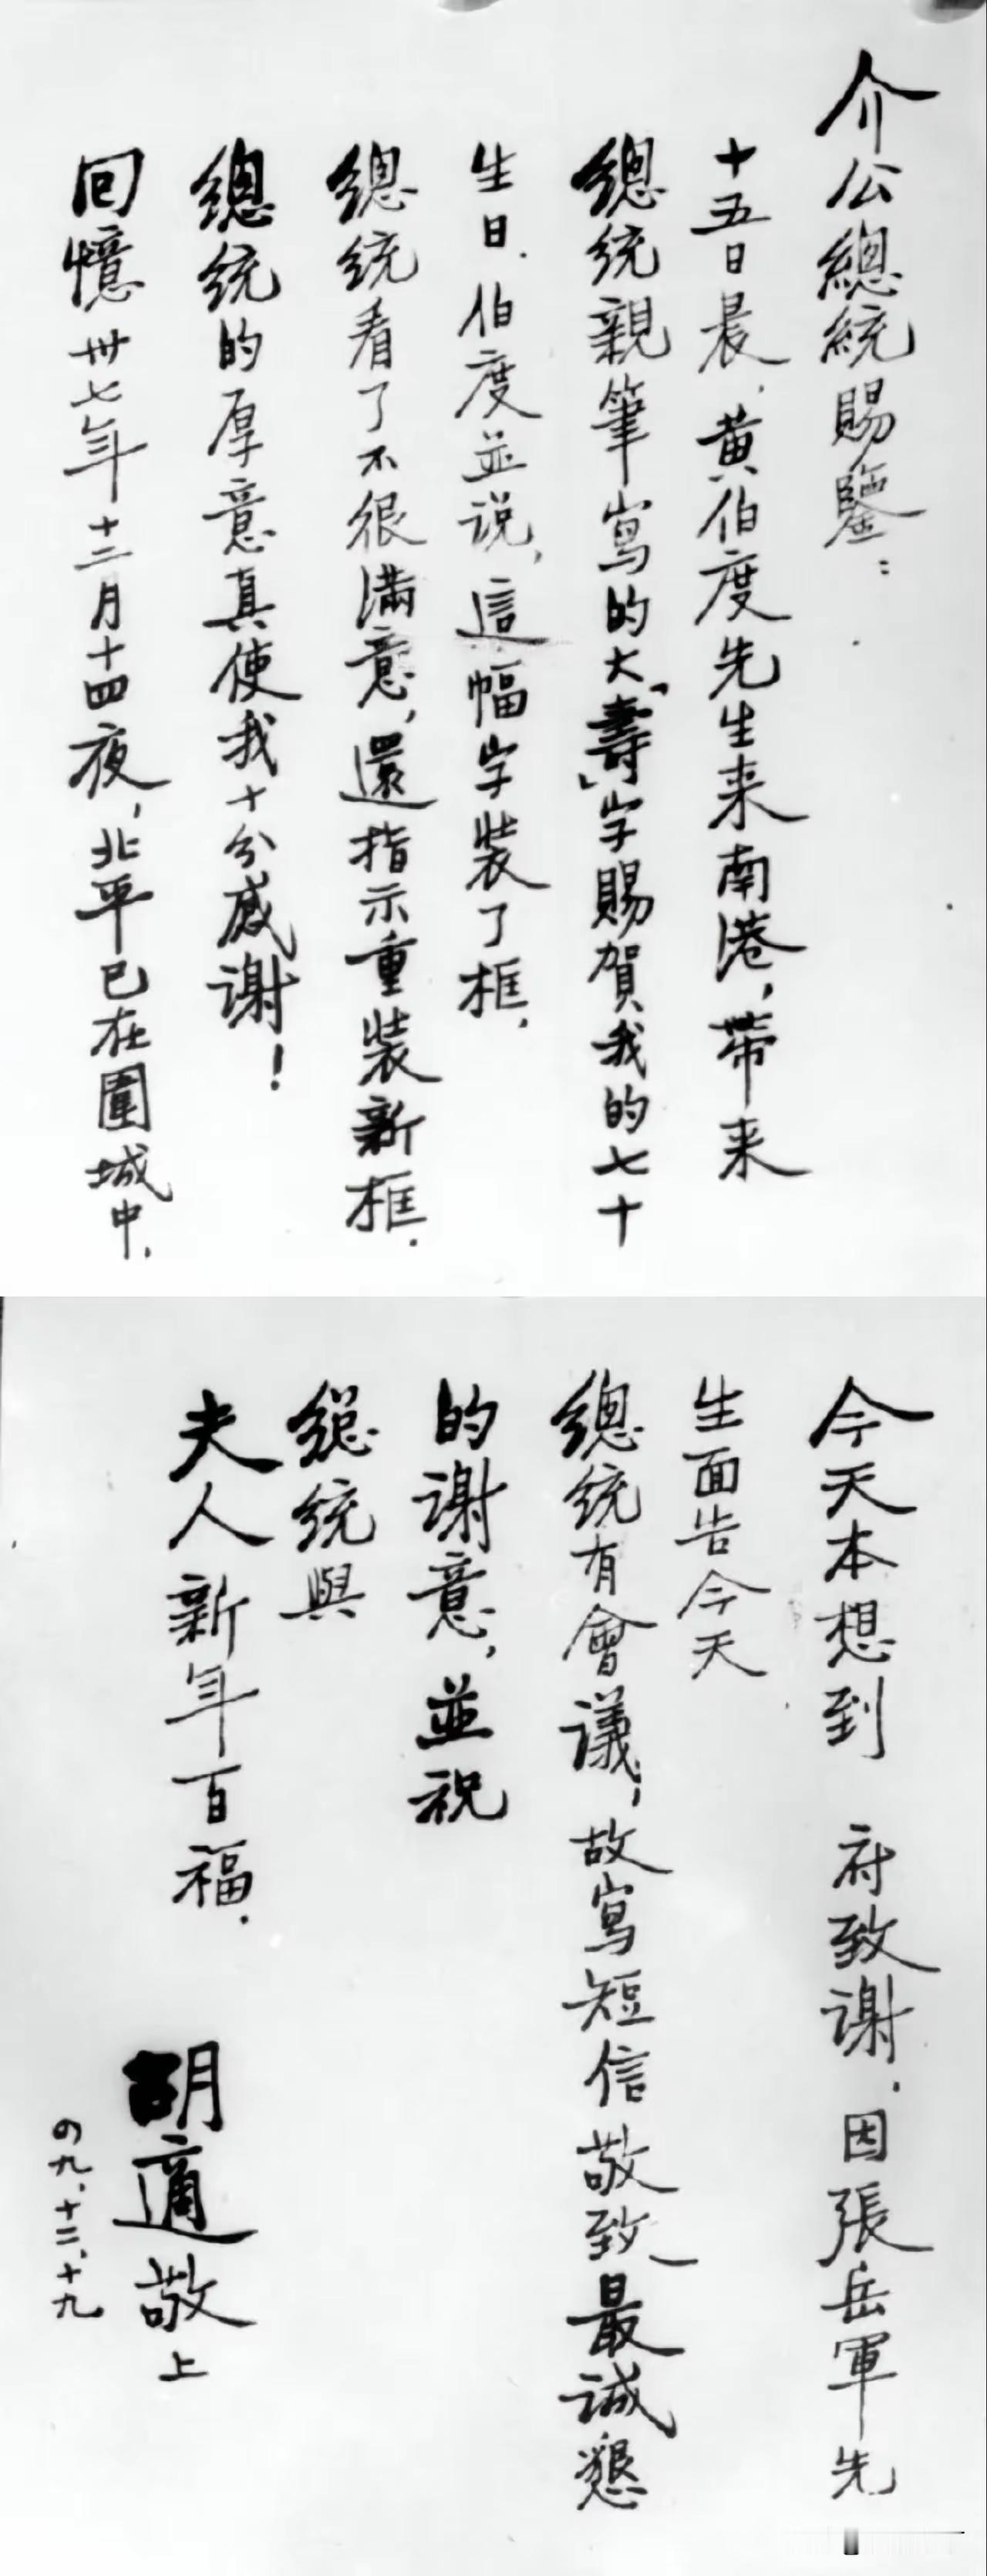 介公總統賜鑒：
十五日晨，黃伯度先生来南港，帶来
總统親筆寫的大「壽」字賜賀我的七十
生日．伯度並说，這幅字裝了框，
總统看了不很滿意，還指示重裝新框．
總统的厚意真使我十分感谢！
回憶卅七年十二月十四夜，北平已在圍城中，
今天本想到　府致谢．因張岳軍先
生面告今天
總统有會議，故寫短信敬致最诚懇
的谢意，並祝
總统與
夫人新年百福．
胡適敬上
四九、十二、十九